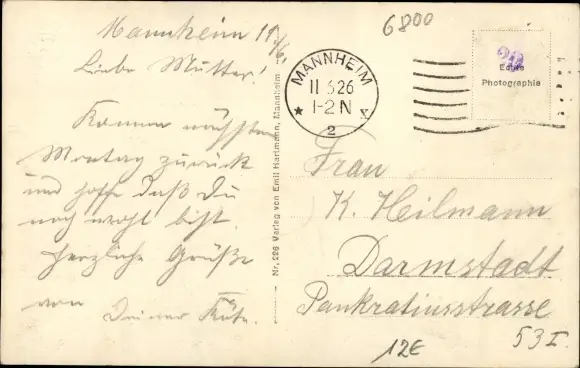 Mannheim 11/6.
Liebe Mutter!
Komme nächsten
Montag zurück
und hoffe daß Du
noch wohl bist.
Herzliche Grüße
von
Deiner Käte.
Nr. 226 Verlag von Emil Hartmann, Mannheim
6800
MANNHEIM
11 6 26
1-2 N
* 2 V
Echte
Photographie
Frau
K. Heilmann
Darmstadt
Pankratiusstrasse
53 I.
12€